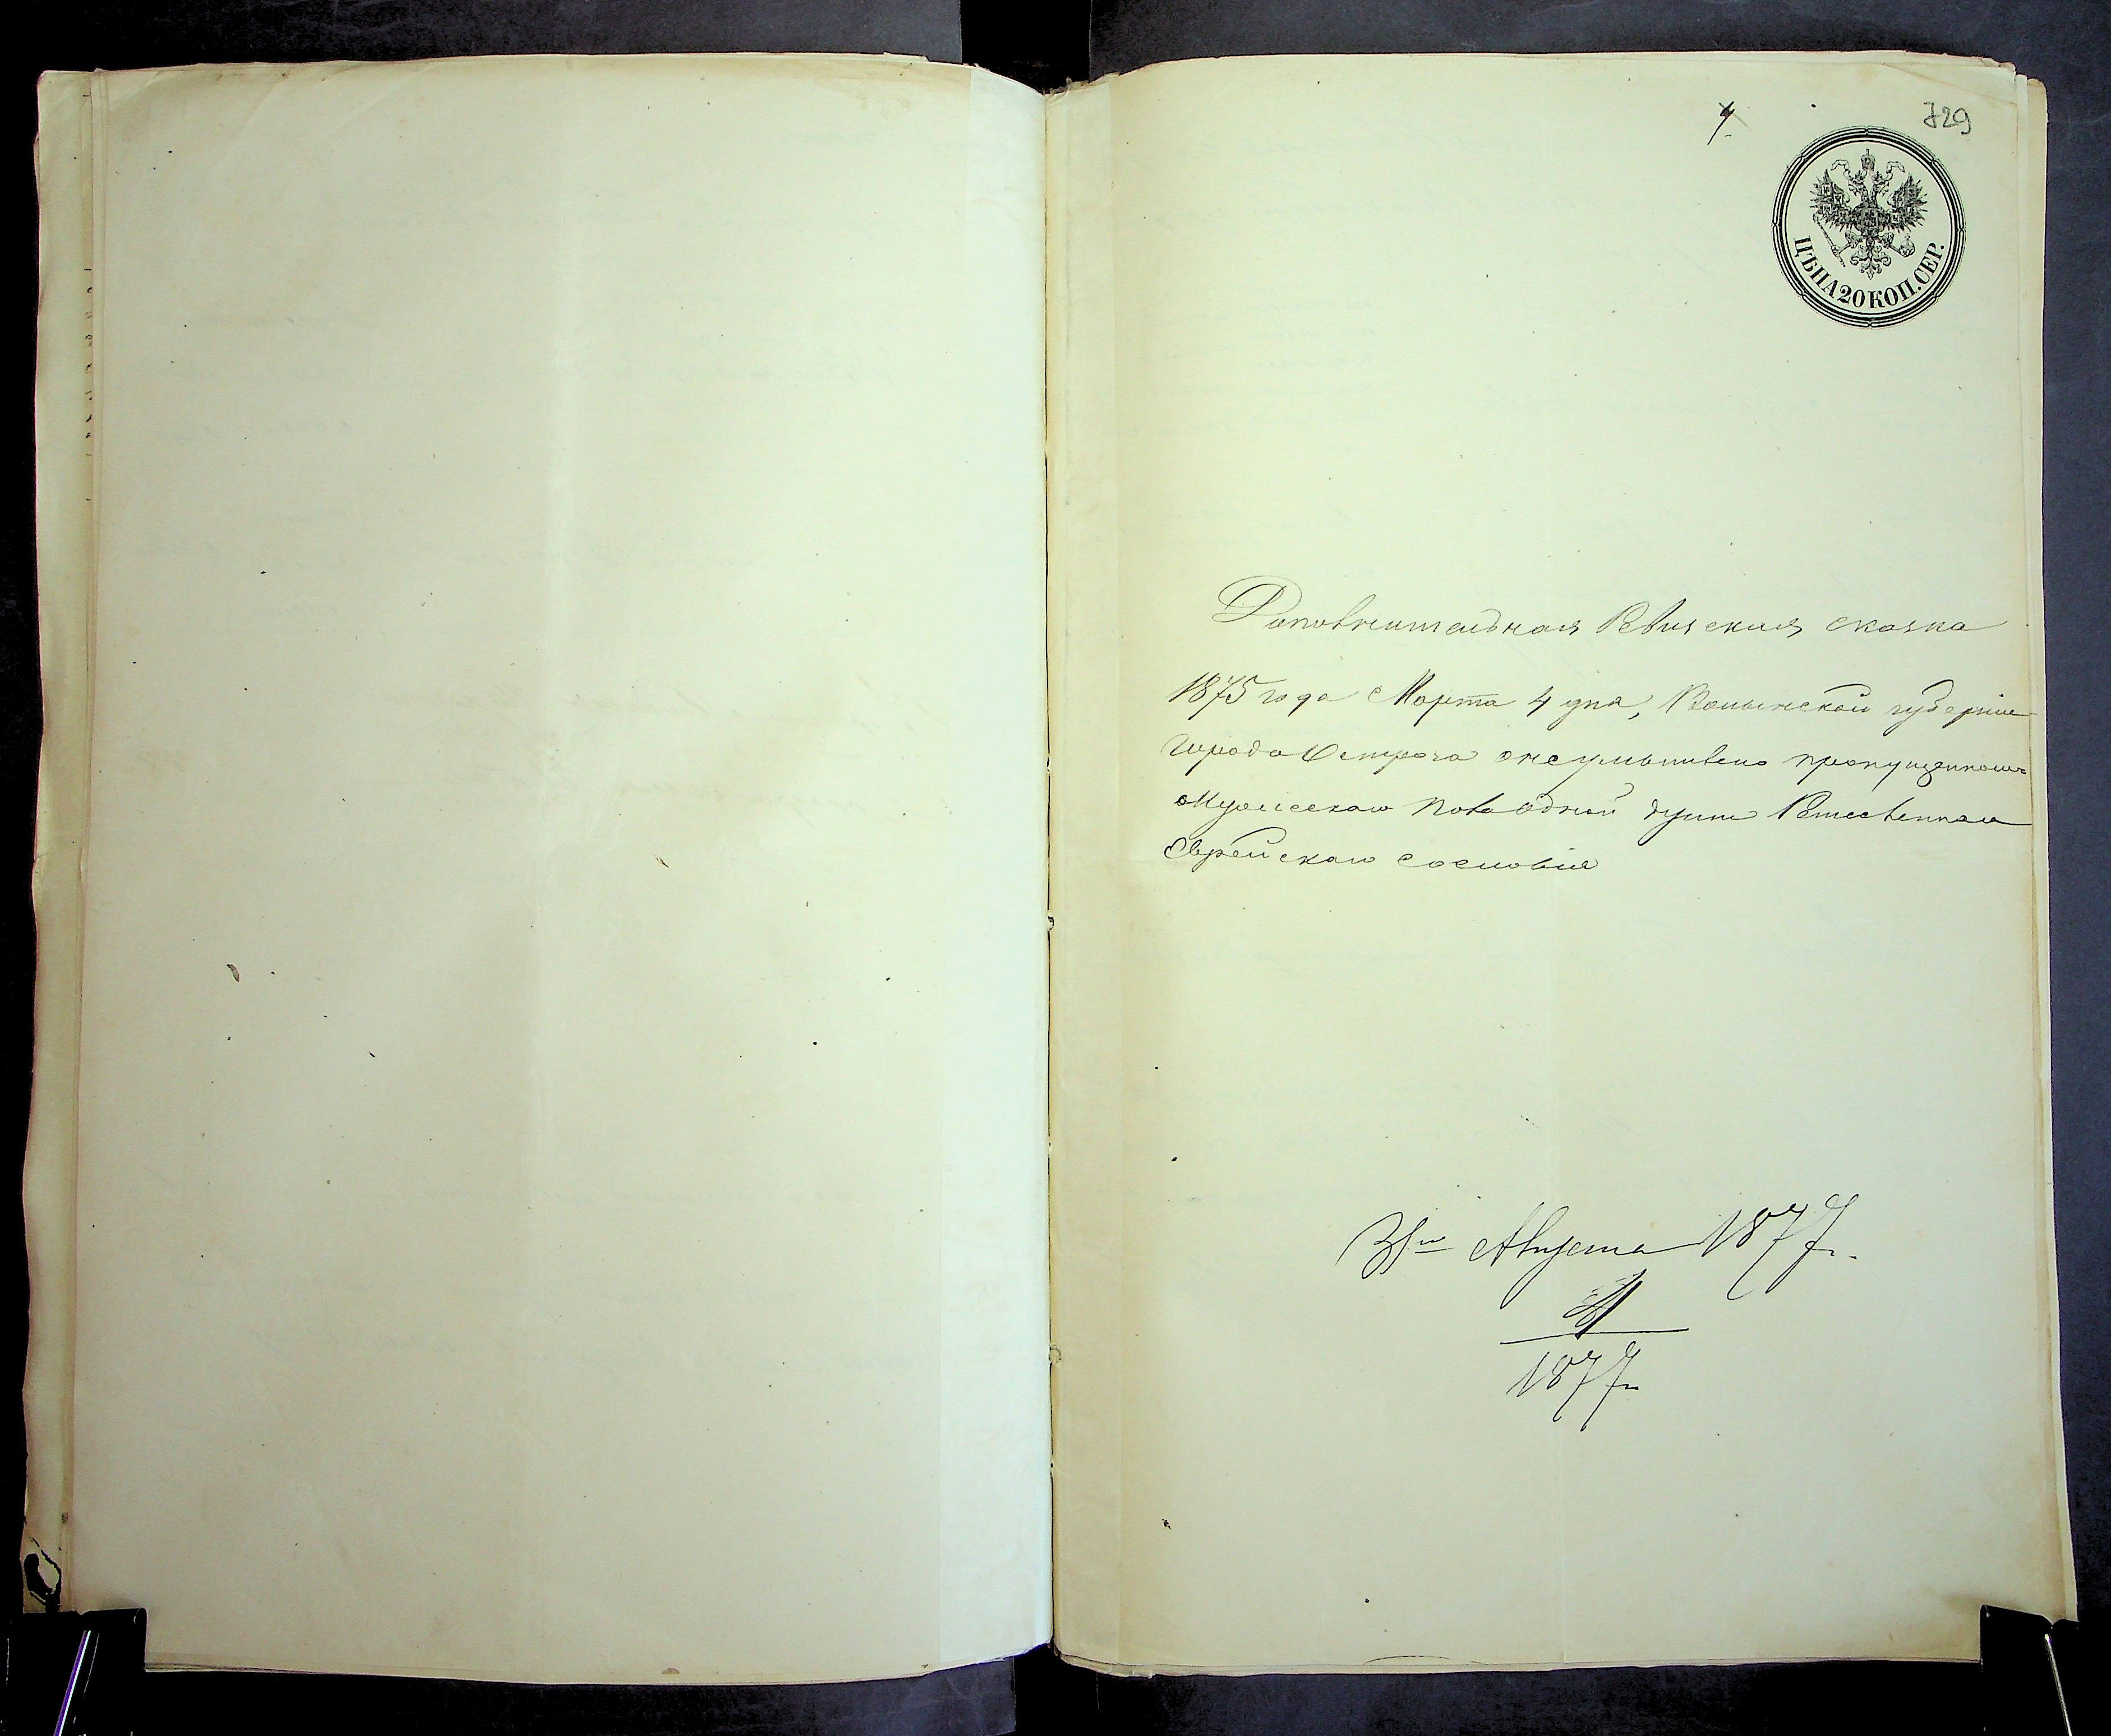 729
ЦѢНА 20 КОП. СЕР.
Дополнительная Ревизская сказка
1875 года Марта 4 дня, Волынской губерніи
города Острога о неумышлено пропущенном
мужескаго пола одной души
Еврейскаго сословія
31го Августа 1877 г.
1877 г.